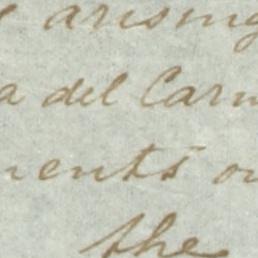 arising
a del Carm
ments on
the